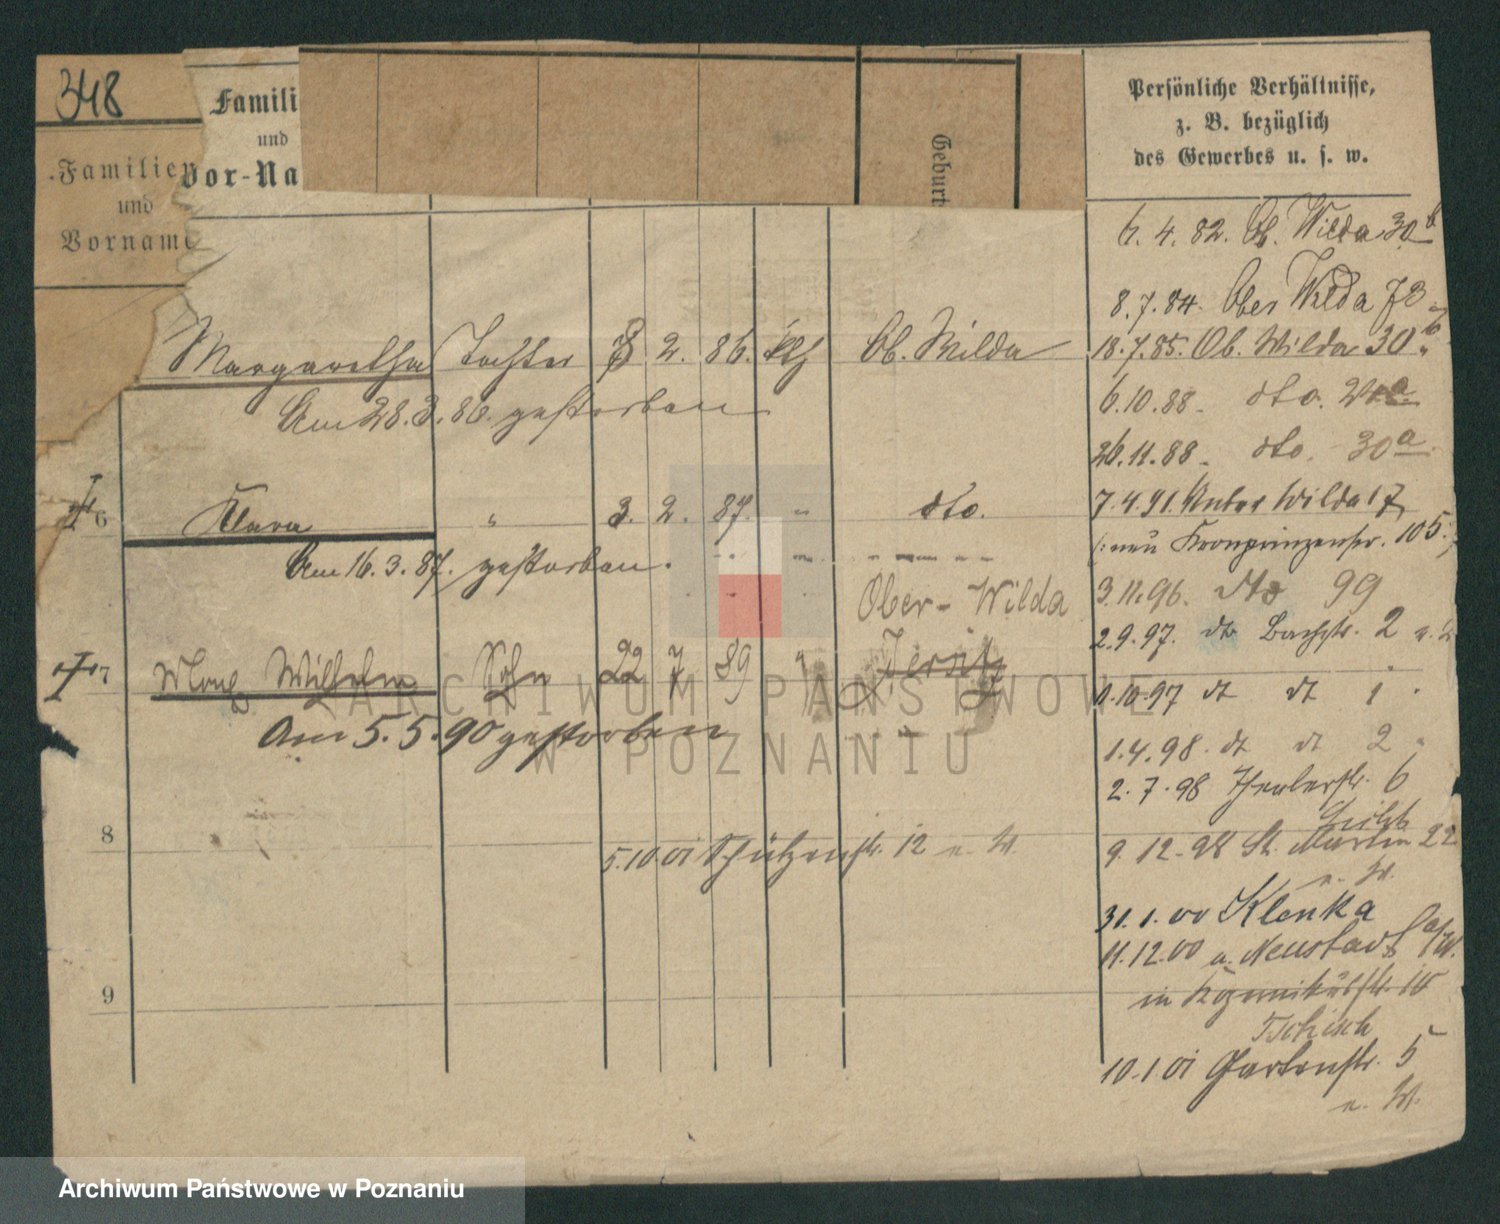 348
Familien
und
Vorname
Famili
und
Vor-Na
Geburt
Persönliche Verhältnisse,
z. B. bezüglich
des Gewerbes u. s. w.
6. 4. 82. Ob. Wilda 30b
8. 7. 84. Ober Wilda 73
18. 7. 85. Ob. Wilda 30b
Margaretha Tochter 8 2. 86. Ob. Wilda
Am 28. 3. 86. gestorben
6. 10. 88. dto.
26. 11. 88. dto. 30a
7. 4. 91. Unter Wilda 17
(: neu Kronprinzenstr. 105
6 Klara " 3. 2. 87. " dto.
Am 16. 3. 87. gestorben.
3. 11. 96. dto 99
Ober-Wilda
2. 9. 97. dto Bachstr. 2
7 Wilhelm Sohn 22 7 89 " Jersitz
1. 10. 97 dt dt 1
Am 5. 5. 90 gestorben
1. 4. 98. dt dt 2
2. 7. 98 6
8
5. 10 01 Schützenstr. 12 u. W.
9. 12. 98 St. Martin 22
u. W.
31. 1. 00 Klenka
11. 12. 00 a. Neustadt a/W.
9
in 10
10. 1 01 Gartenstr. 5
u. W.
ARCHIWUM PAŃSTWOWE
W POZNANIU
Archiwum Państwowe w Poznaniu